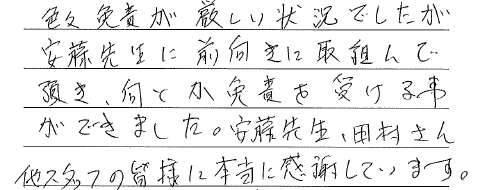 色々免責が厳しい状況でしたが
安藤先生に前向きに取組んで
頂き、何とか免責を受ける事
ができました。安藤先生、田村さん
他スタッフの皆様に本当に感謝しています。